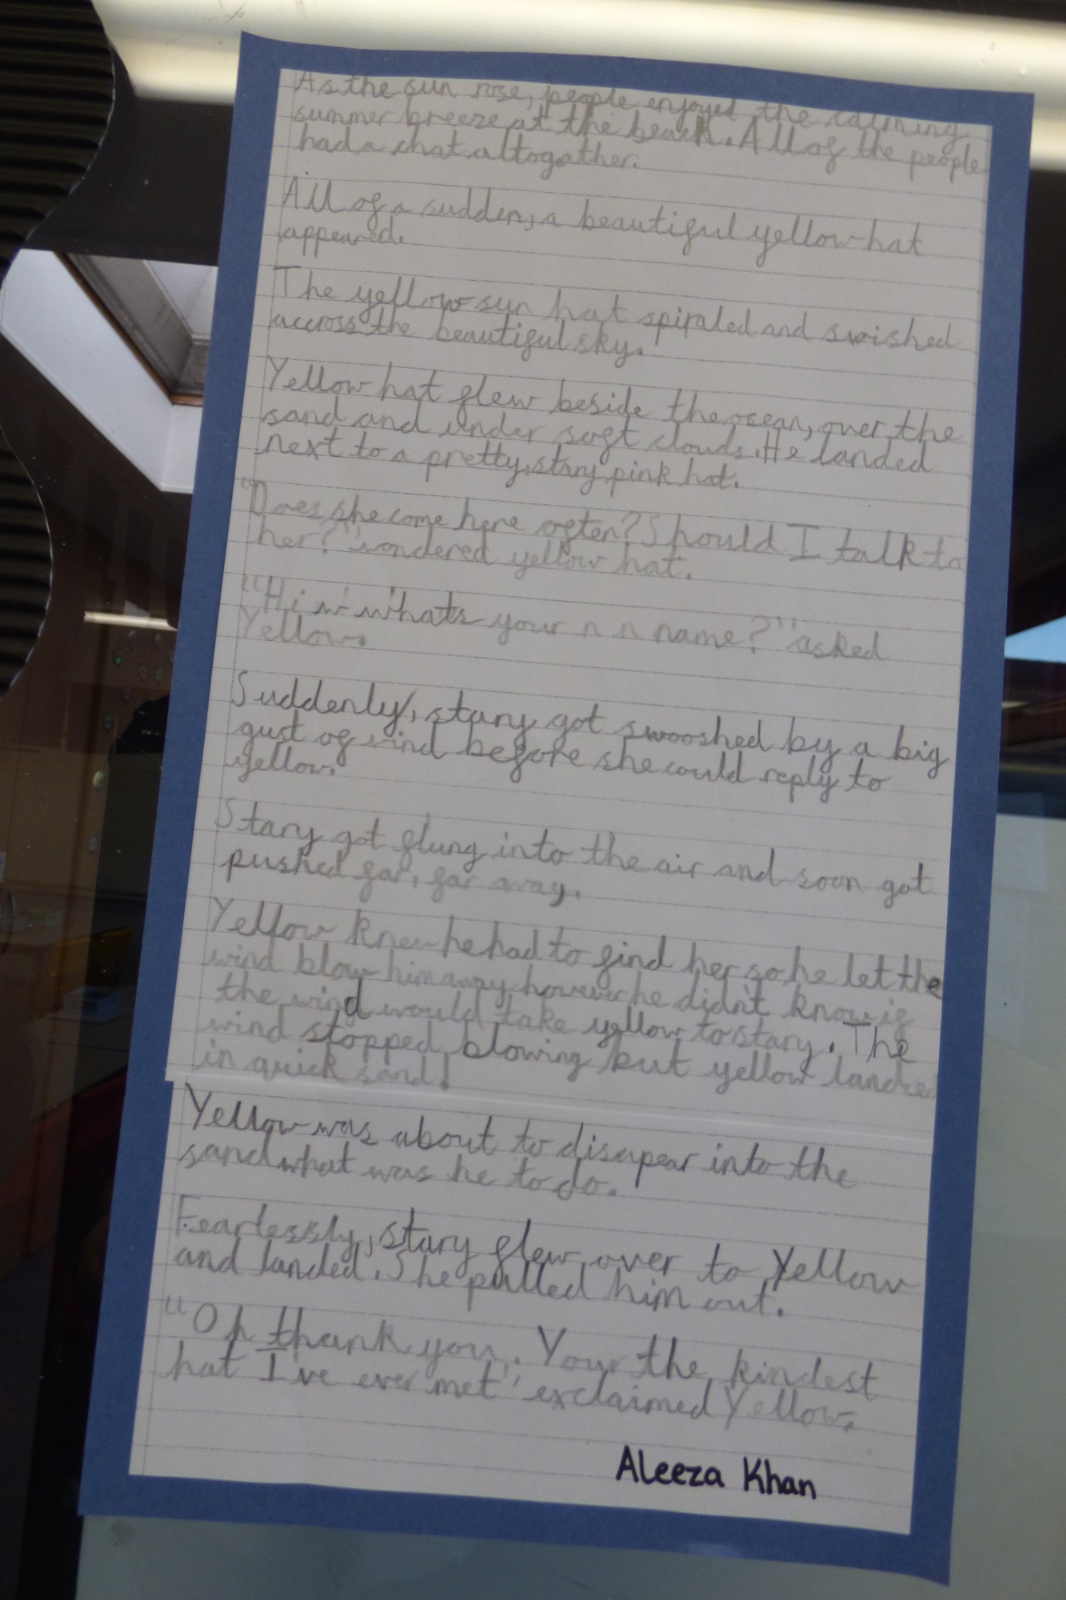 As the sun rose, people enjoyed the calming
summer breeze at the beach. All of the people
had a chat altogather.
All of a sudden, a beautiful yellow hat
appeared.
The yellow sun hat spiraled and swished
accross the beautiful sky.
Yellow hat flew beside the ocean, over the
sand and under soft clouds. He landed
next to a pretty, stary pink hat.
"Does she come here often? Should I talk to
her?" wondered yellow hat.
"Hi w w whats your n n name?" asked
Yellow.
Suddenly, stary got swooshed by a big
gust of wind before she could reply to
yellow.
Stary got flung into the air and soon got
pushed far, far away.
Yellow knew he had to find her so he let the
wind blow him away however he didn't know if
the wind would take yellow to stary. The
wind stopped blowing but yellow landed
in quick sand!
Yellow was about to disapear into the
sand what was he to do.
Fearlessly, stary flew over to Yellow
and landed. She pulled him out.
"Oh thank you. Your the kindest
hat I've ever met" exclaimed Yellow.
Aleeza Khan